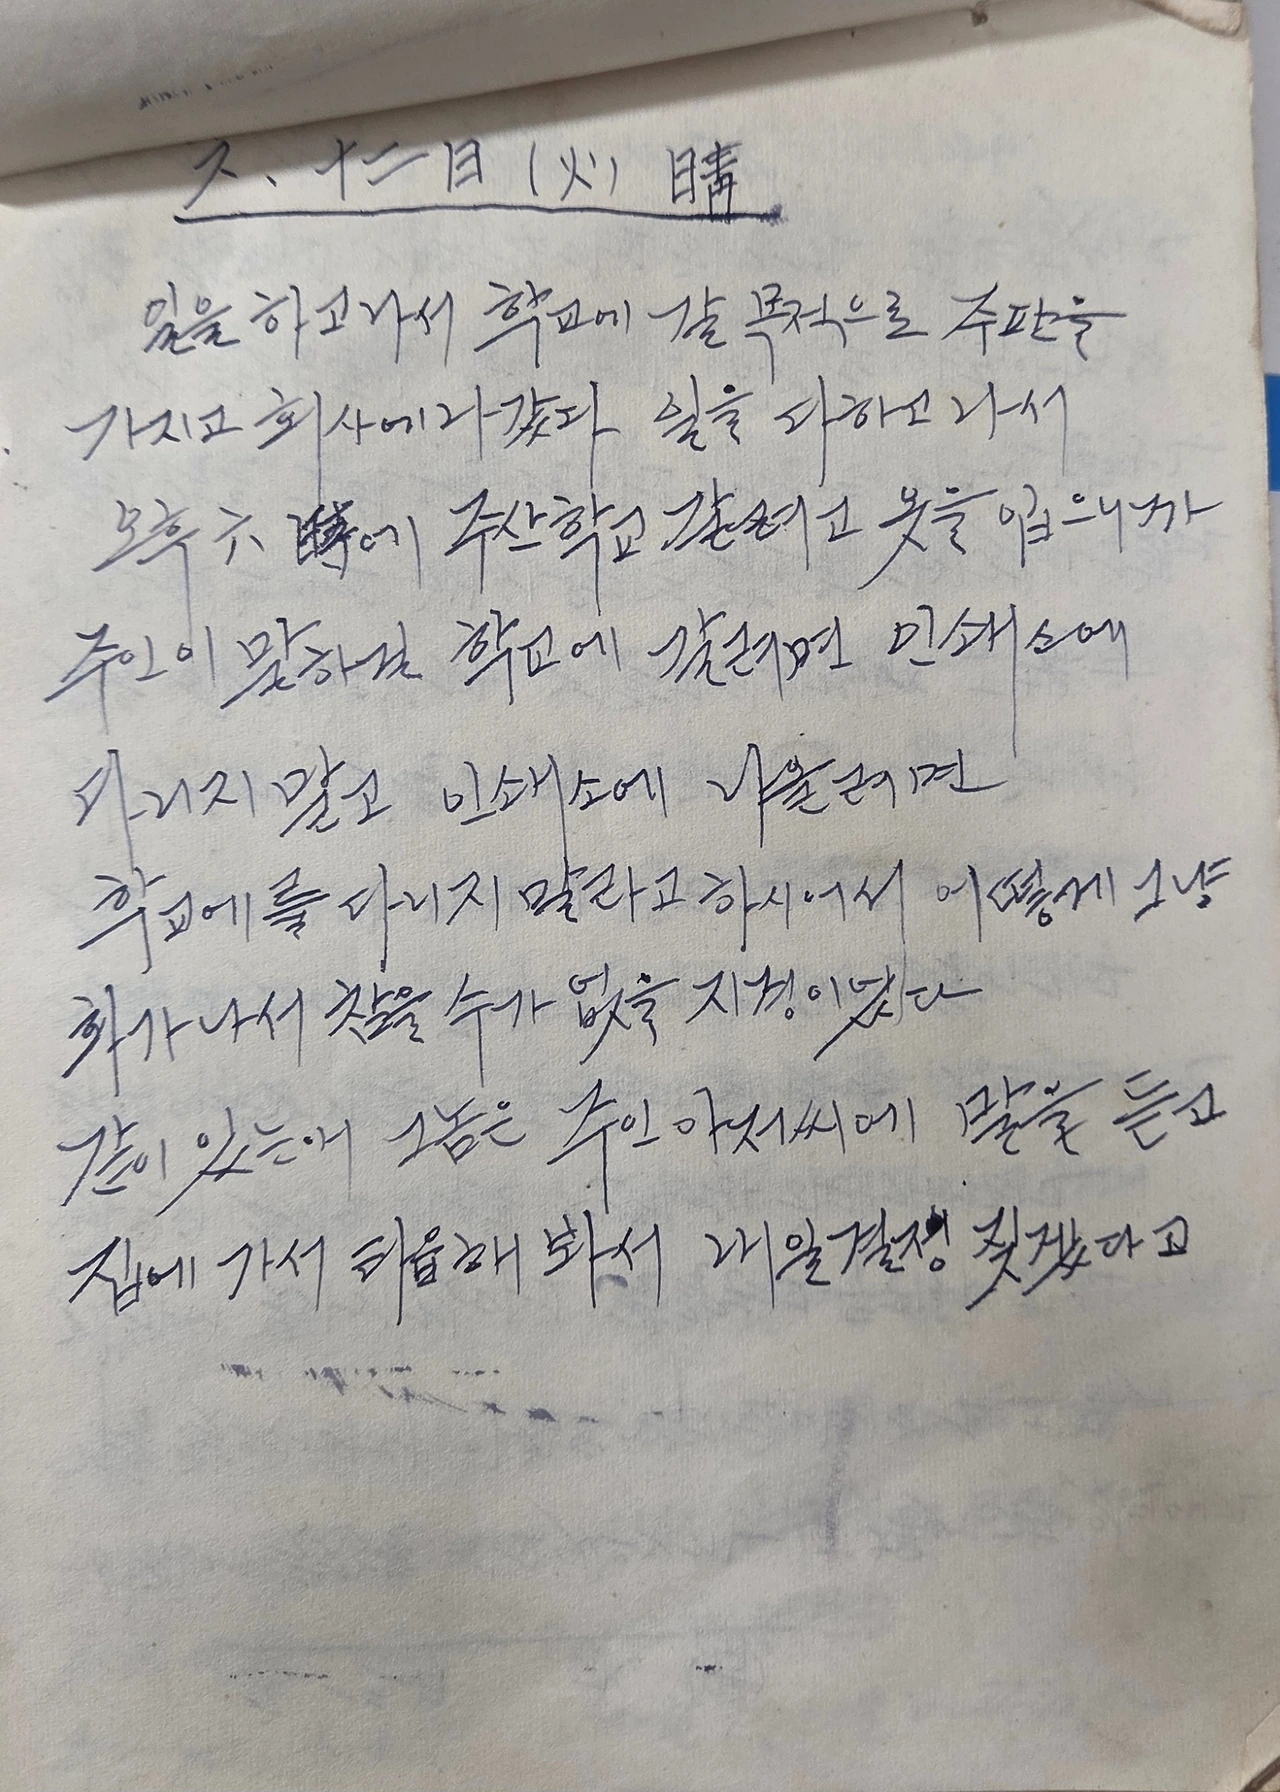 六、十二日 (火) 晴
일을 하고 나서 학교에 갈 목적으로 주판을
가지고 회사에 나갔다 일을 다 하고 나서
오후 六 時에 주산학교 갈려고 옷을 입으니까
주인이 말하길 학교에 갈려면 인쇄소에
다니지 말고 인쇄소에 나올려면
학교에를 다니지 말라고 하시어서 어떻게 그냥
화가 나서 참을 수가 없을 지경이였다
같이 있는 애 그놈은 주인 아저씨에 말을 듣고
집에 가서 타협해 봐서 내일 결정 짓겠다고